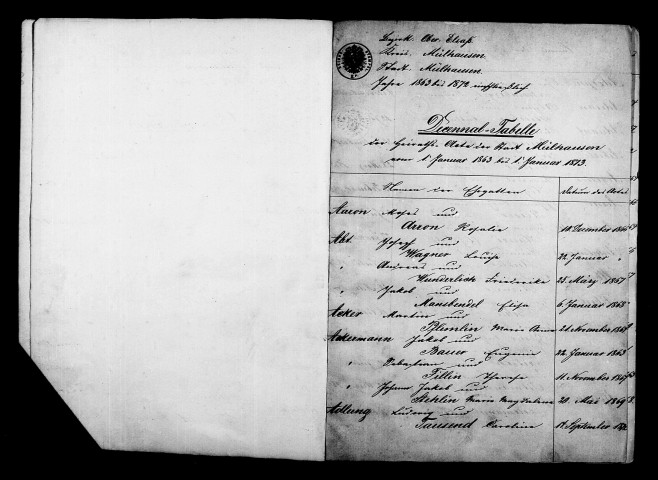 Bezirk. Ober-Elsaß
Kreis. Mülhausen
Stadt. Mülhausen
Jahre 1863 bis 1872
Decennal-Tabelle
der Heiraths-Akte der Stadt Mülhausen
vom 1. Januar 1863 bis 1. Januar 1873.
Namen der Ehegatten Datum des Actes
Aaron Moses und
Aaron Rosalie 10. December
Abt. Joseph und
Wagner Louise 22. Januar "
" Andreas und
Wunderlich Friederike 25. März 1867
" Jakob und
Mansbendel Elisa 6. Januar 1868
Acker Martin und
Blemlin Maria Anna 21. November
Ackermann Jakob und
Bauer Eugenie 22. Januar 1863
" Sebastian und
Tillin Therese 11. November
" Johann Jakob und
Stehlin Maria Magdalena 20. Mai 1869
Adlung Ludwig und
Tausend Caroline September